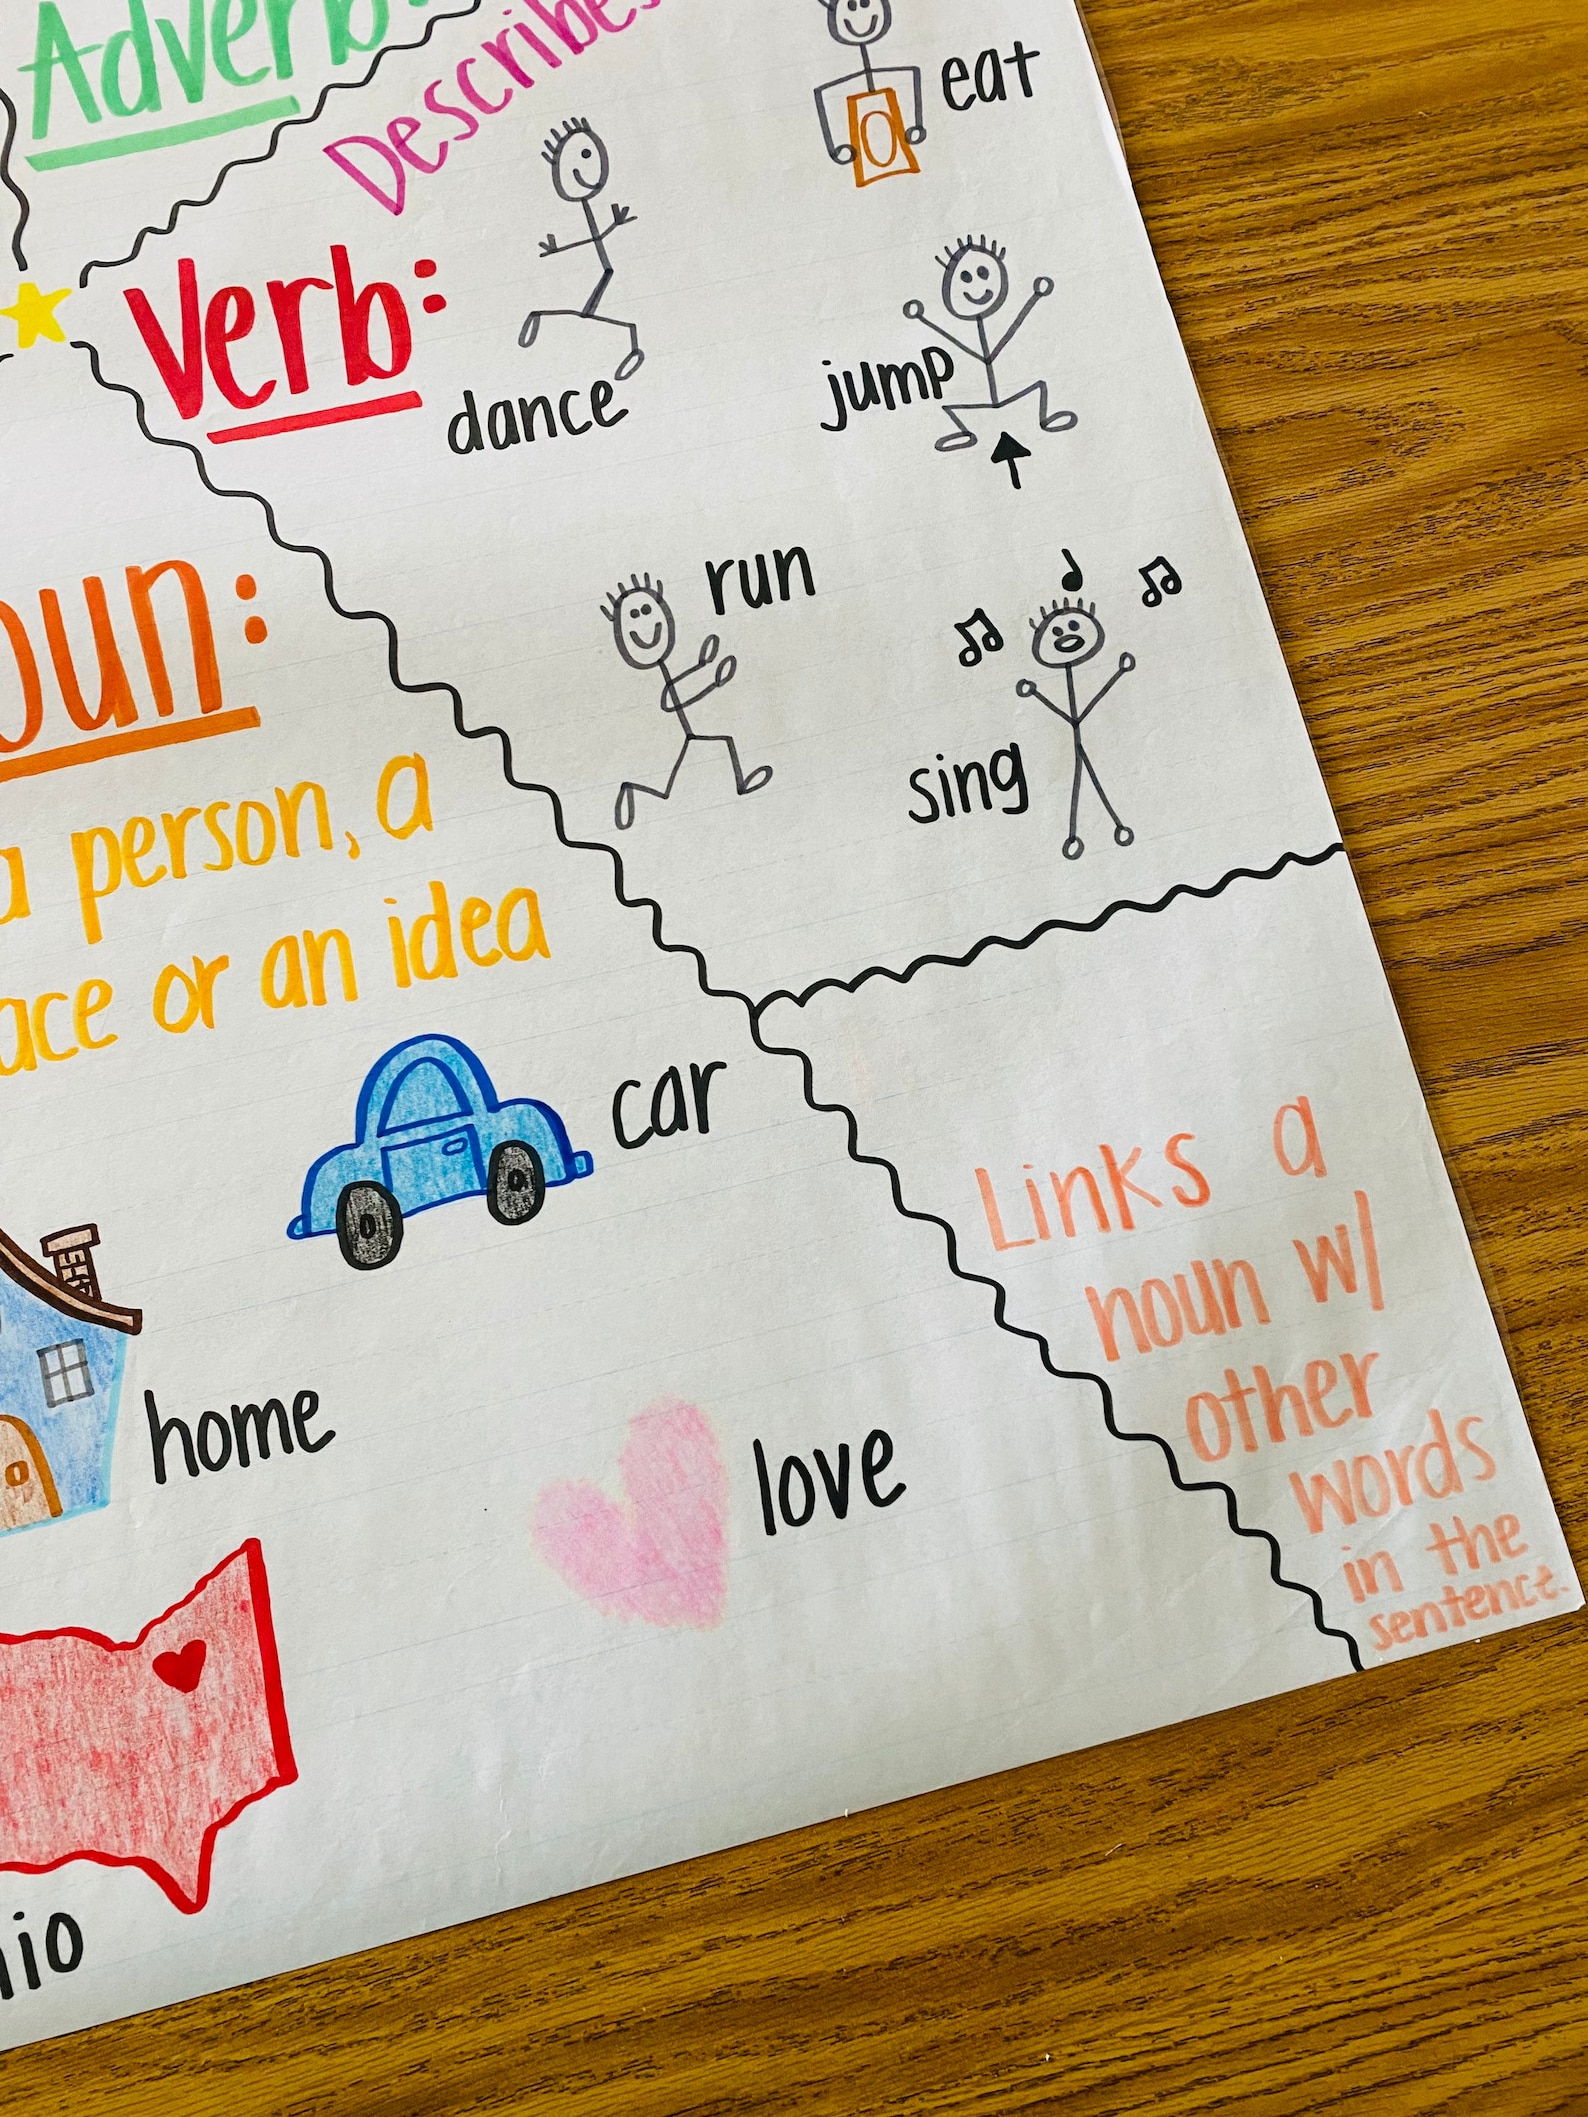 Adverb:
Describes
eat
Verb:
dance
jump
run
sing
oun:
a person, a
ace or an idea
car
home
love
hio
Links a
noun w/
other
words
in the
sentence.